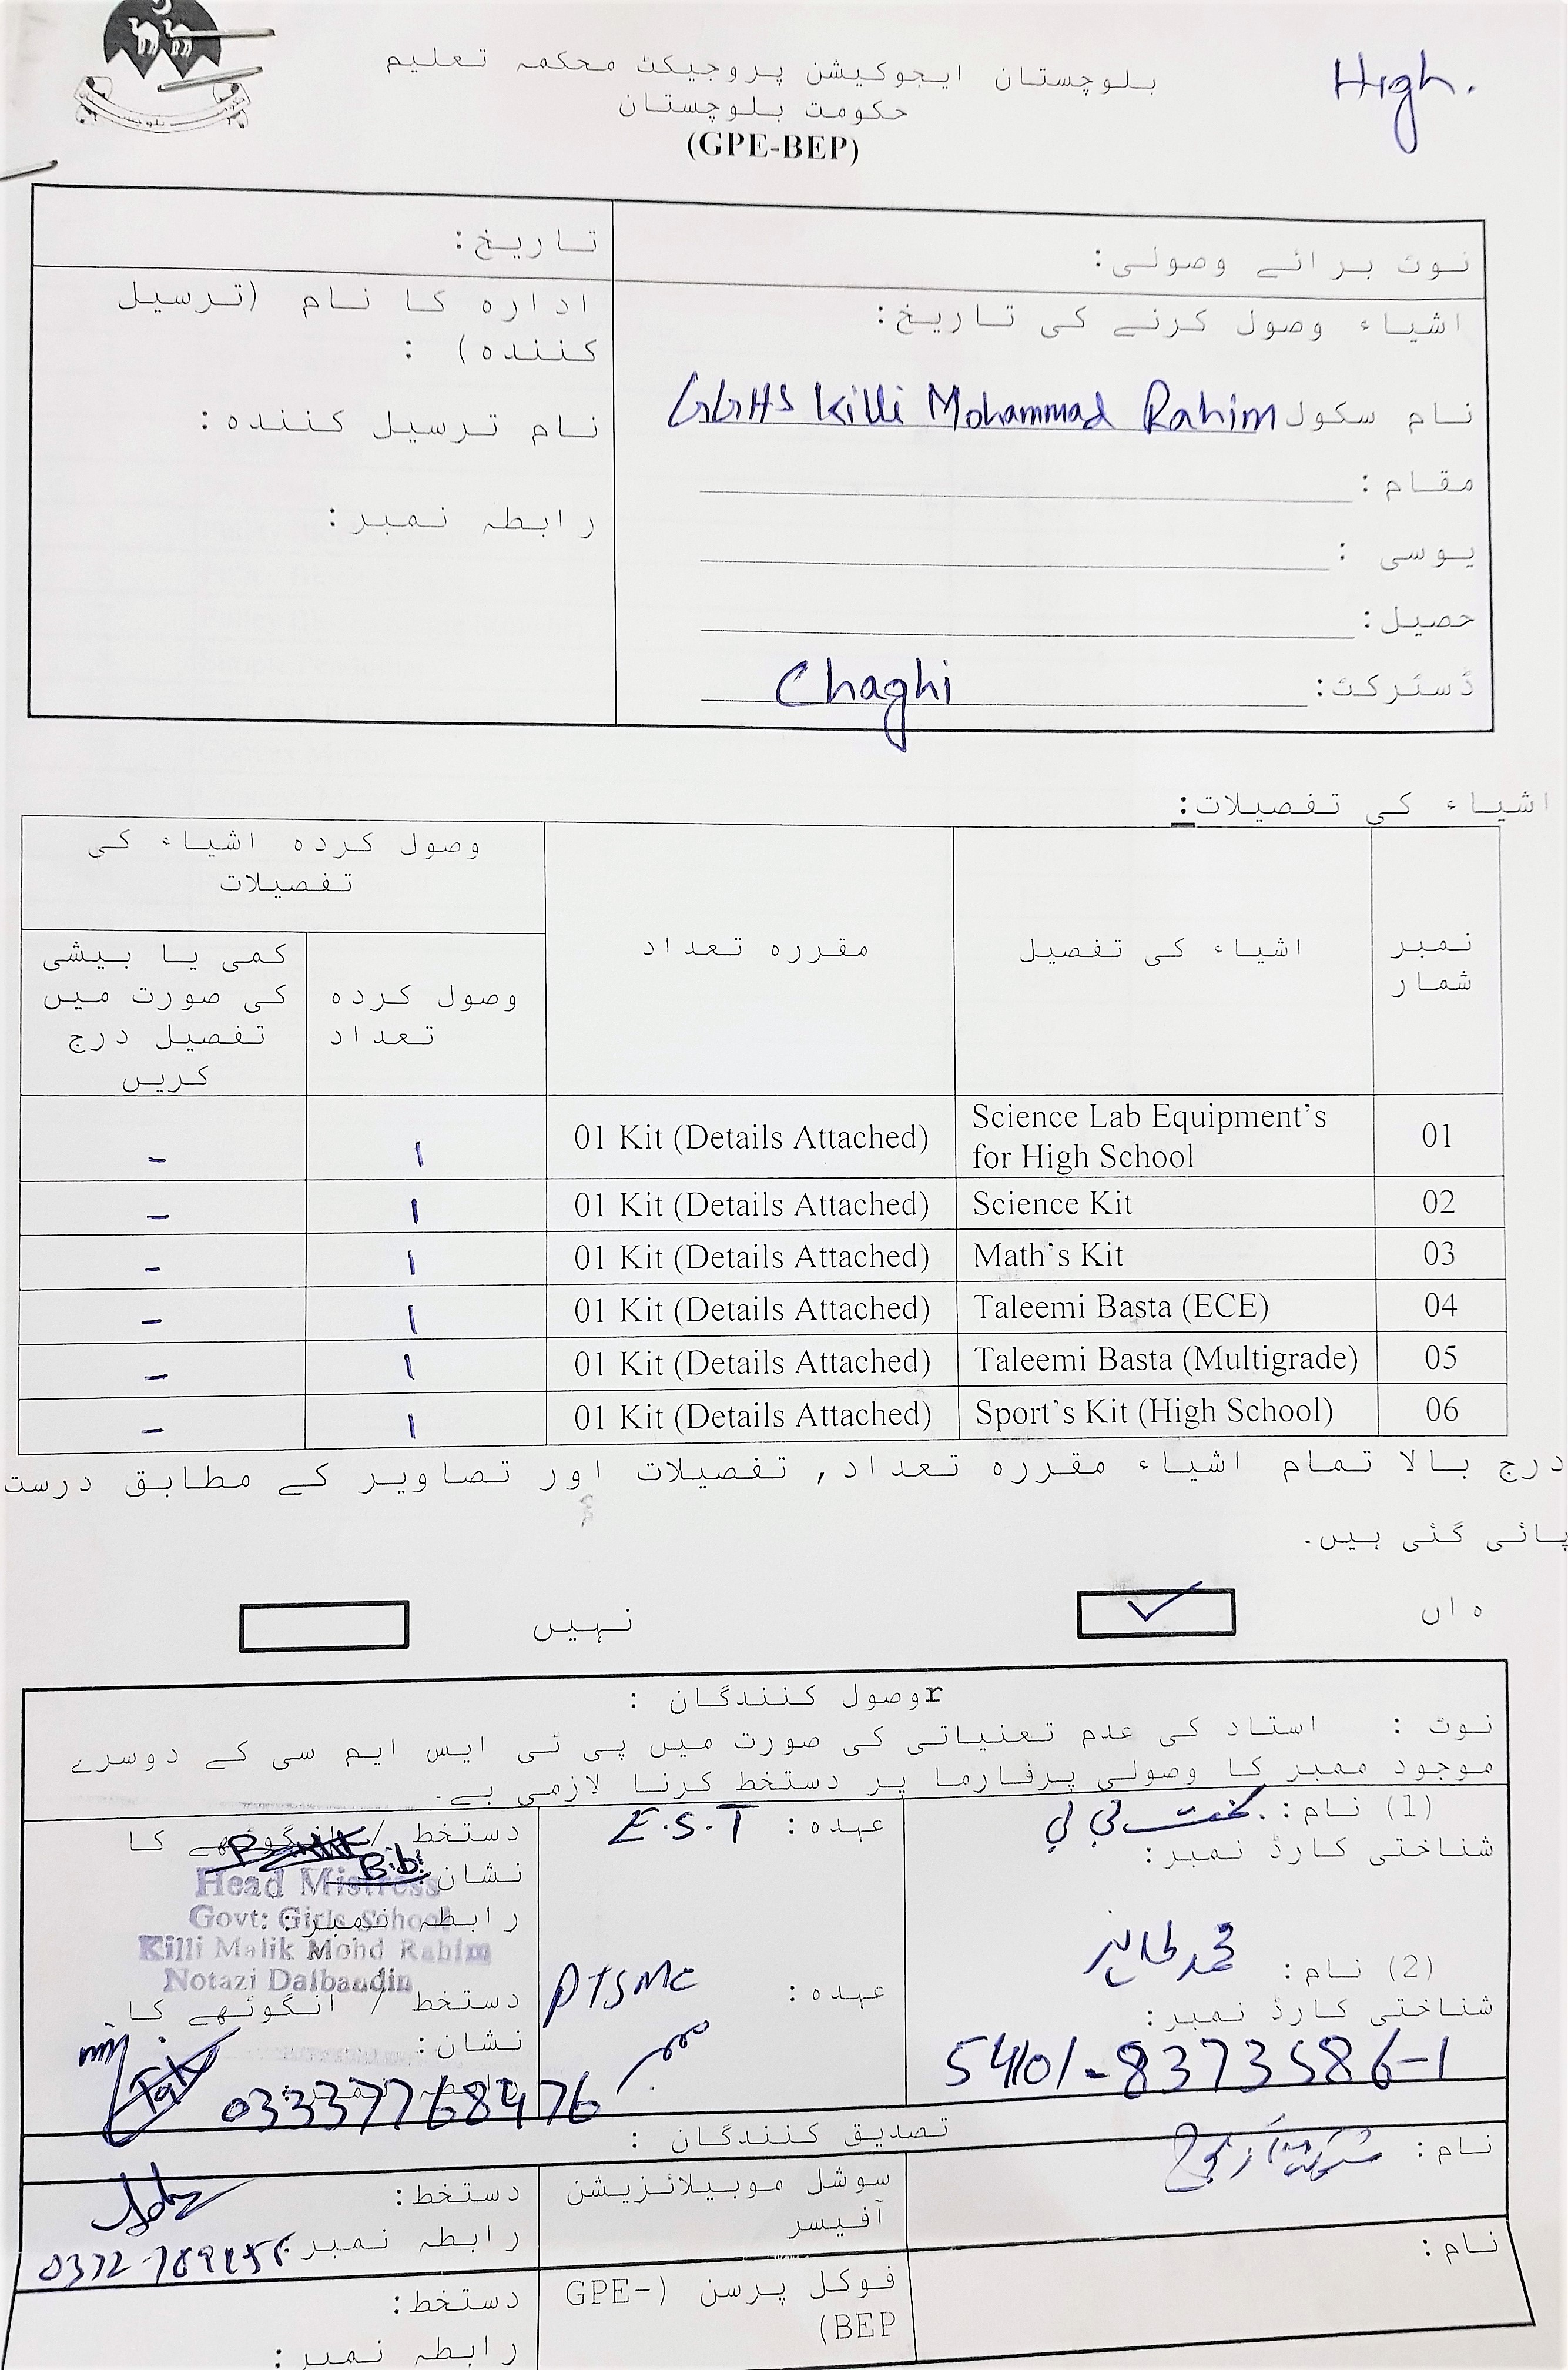 بلوچستان ایجوکیشن پروجیکٹ محکمہ تعلیم
حکومت بلوچستان
(GPE-BEP)
High.
نوٹ برائے وصولی:
تاریخ:
اشیاء وصول کرنے کی تاریخ:
نام سکول GGHS Killi Mohammad Rahim
مقام:
یوسی :
حصیل:
ڈسٹرکٹ: Chaghi
ادارہ کا نام (ترسیل
کنندہ) :
نام ترسیل کنندہ:
رابطہ نمبر:
اشیاء کی تفصیلات:
نمبر شمار
اشیاء کی تفصیل
مقررہ تعداد
وصول کردہ اشیاء کی
تفصیلات
وصول کردہ
تعداد
کمی یا بیشی
کی صورت میں
تفصیل درج
کریں
01 Science Lab Equipment's for High School 01 Kit (Details Attached) 1 -
02 Science Kit 01 Kit (Details Attached) 1 -
03 Math's Kit 01 Kit (Details Attached) 1 -
04 Taleemi Basta (ECE) 01 Kit (Details Attached) 1 -
05 Taleemi Basta (Multigrade) 01 Kit (Details Attached) 1 -
06 Sport's Kit (High School) 01 Kit (Details Attached) 1 -
درج بالا تمام اشیاء مقررہ تعداد, تفصیلات اور تصاویر کے مطابق درست
پائی گئی ہیں۔
ہاں
نہیں
rوصول کنندگان :
نوٹ : استاد کی عدم تعنیاتی کی صورت میں پی ٹی ایس ایم سی کے دوسرے
موجود ممبر کا وصولی پرفارما پر دستخط کرنا لازمی ہے۔
(1) نام: بخت بی بی
شناختی کارڈ نمبر:
عہدہ: E.S.T
دستخط / انگوٹھے کا
نشان: Bibi
رابطہ نمبر:
Head Mistress
Govt: Girls School
Killi Malik Mohd Rahim
Notazi Dalbandin
(2) نام: محمد طاہر
شناختی کارڈ نمبر:
54101-8373586-1
عہدہ: PTSMC
دستخط / انگوٹھے کا
نشان:
03337768476
تصدیق کنندگان :
نام:
سوشل موبیلائزیشن
آفیسر
دستخط:
رابطہ نمبر
نام:
فوکل پرسن (GPE-
BEP)
دستخط:
رابطہ نمبر: